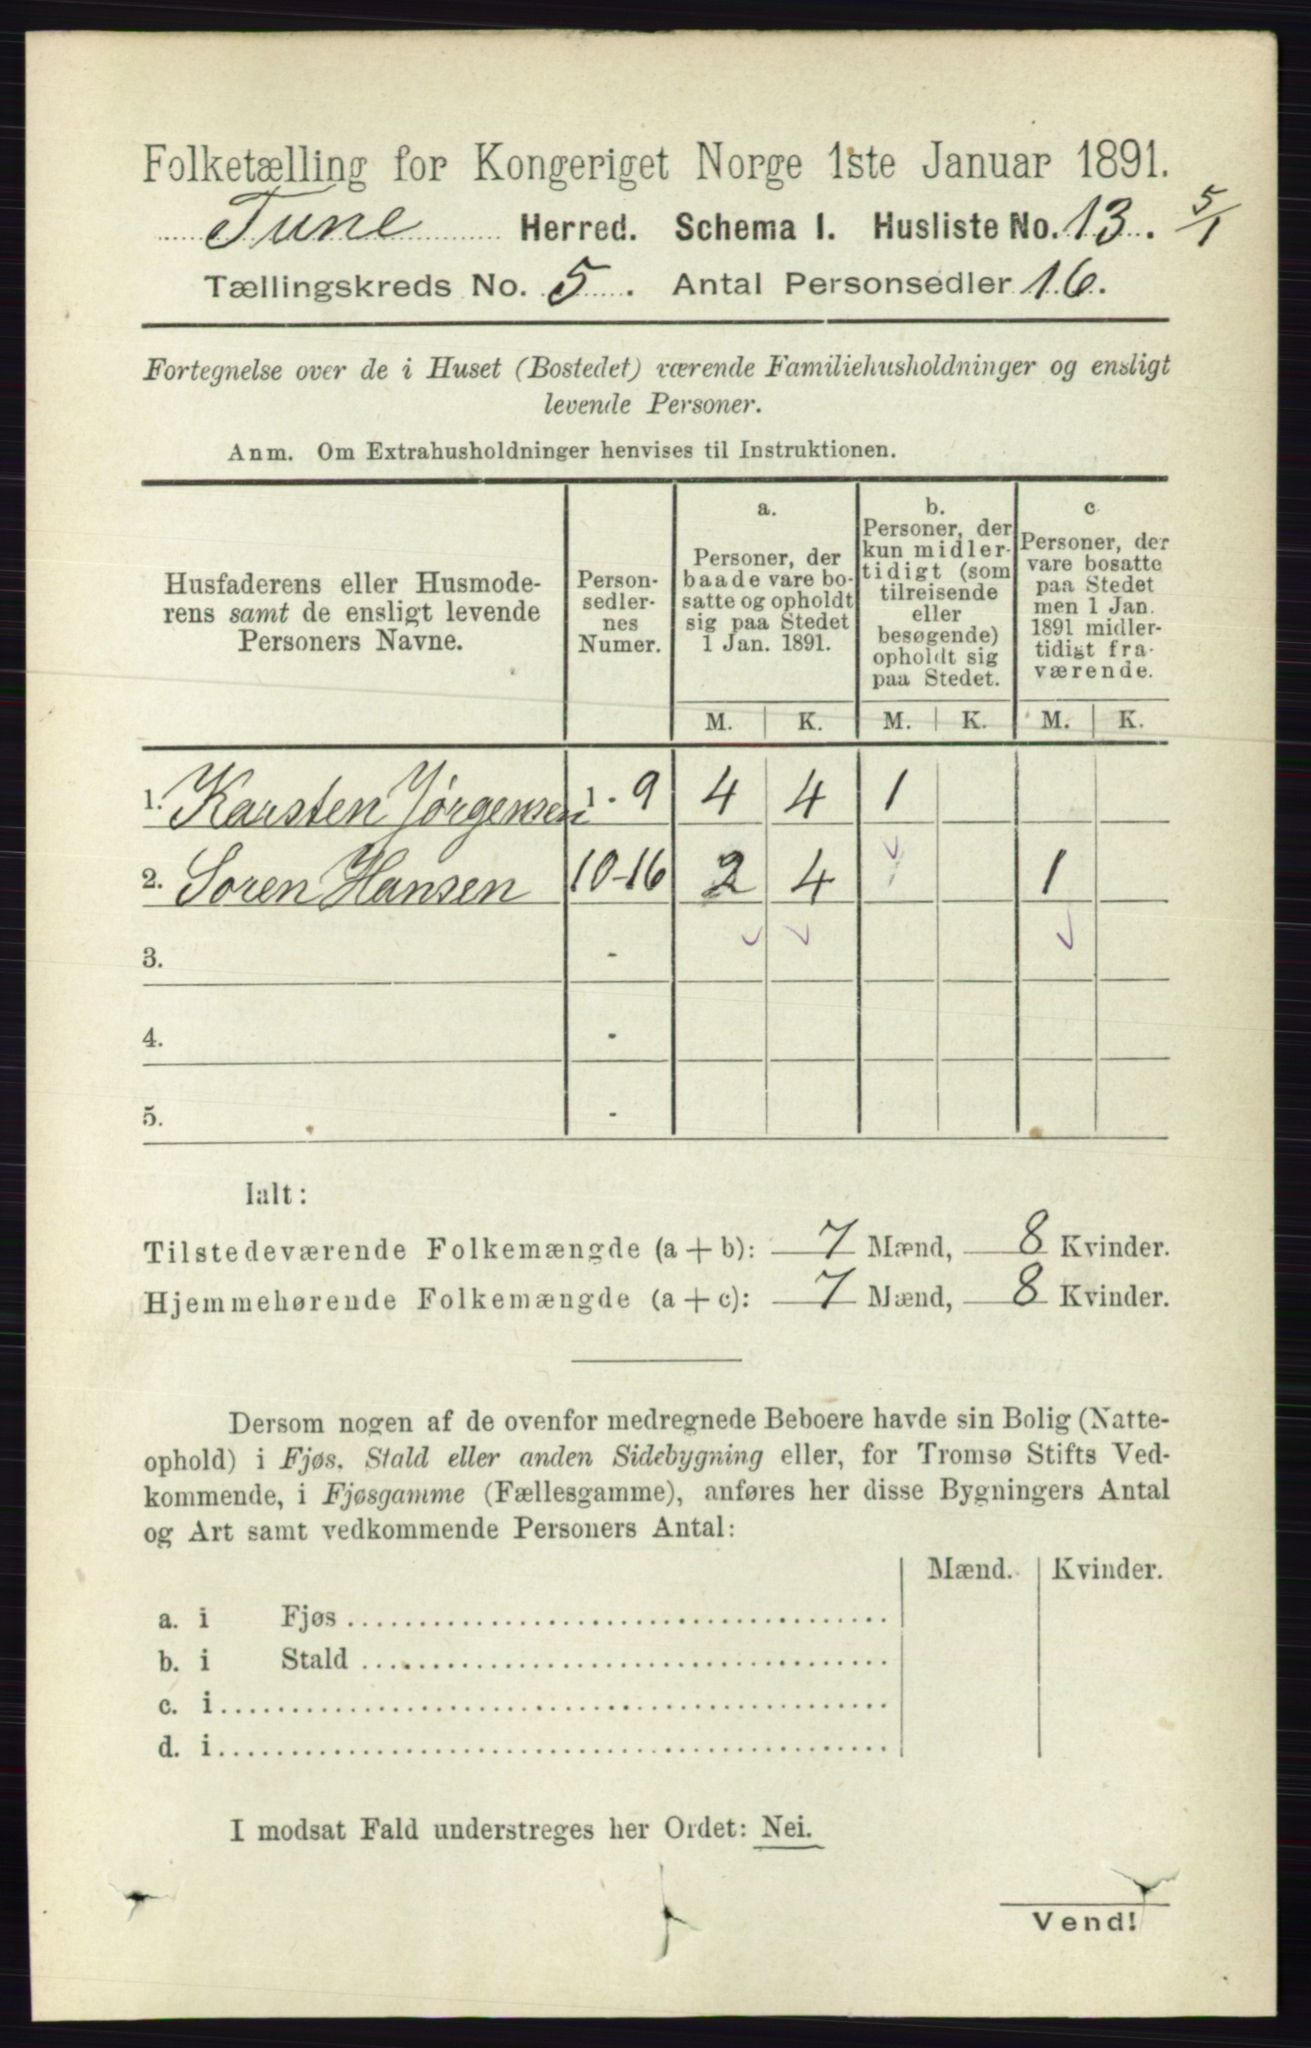 Folketælling for Kongeriget Norge 1ste Januar 1891.
Tune Herred. Schema I. Husliste No. 13. 5/1
Tællingskreds No. 5. Antal Personsedler 16.
Fortegnelse over de i Huset (Bostedet) værende Familiehusholdninger og ensligt
levende Personer.
Anm. Om Extrahusholdninger henvises til Instruktionen.
Husfaderens eller Husmode-
rens samt de ensligt levende
Personers Navne.
Person-
sedler-
nes
Numer.
a.
Personer, der
baade vare bo-
satte og opholdt
sig paa Stedet
1 Jan. 1891.
b.
Personer, der
kun midler-
tidigt (som
tilreisende
eller
besøgende)
opholdt sig
paa Stedet.
c
Personer, der
vare bosatte
paa Stedet
men 1 Jan.
1891 midler-
tidigt fra-
værende.
M. K. M. K. M. K.
1. Karsten Jørgensen 1 - 9 4 4 1
2. Soren Hansen 10-16 2 4 1
3. -
4. -
5. -
Ialt:
Tilstedeværende Folkemængde (a + b): 7 Mænd, 8 Kvinder.
Hjemmehørende Folkemængde (a + c): 7 Mænd, 8 Kvinder.
Dersom nogen af de ovenfor medregnede Beboere havde sin Bolig (Natte-
ophold) i Fjøs, Stald eller anden Sidebygning eller, for Tromsø Stifts Ved-
kommende, i Fjøsgamme (Fællesgamme), anføres her disse Bygningers Antal
og Art samt vedkommende Personers Antal:
Mænd. Kvinder.
a. i Fjøs
b. i Stald
c. i
d. i
I modsat Fald understreges her Ordet: Nei.
Vend!